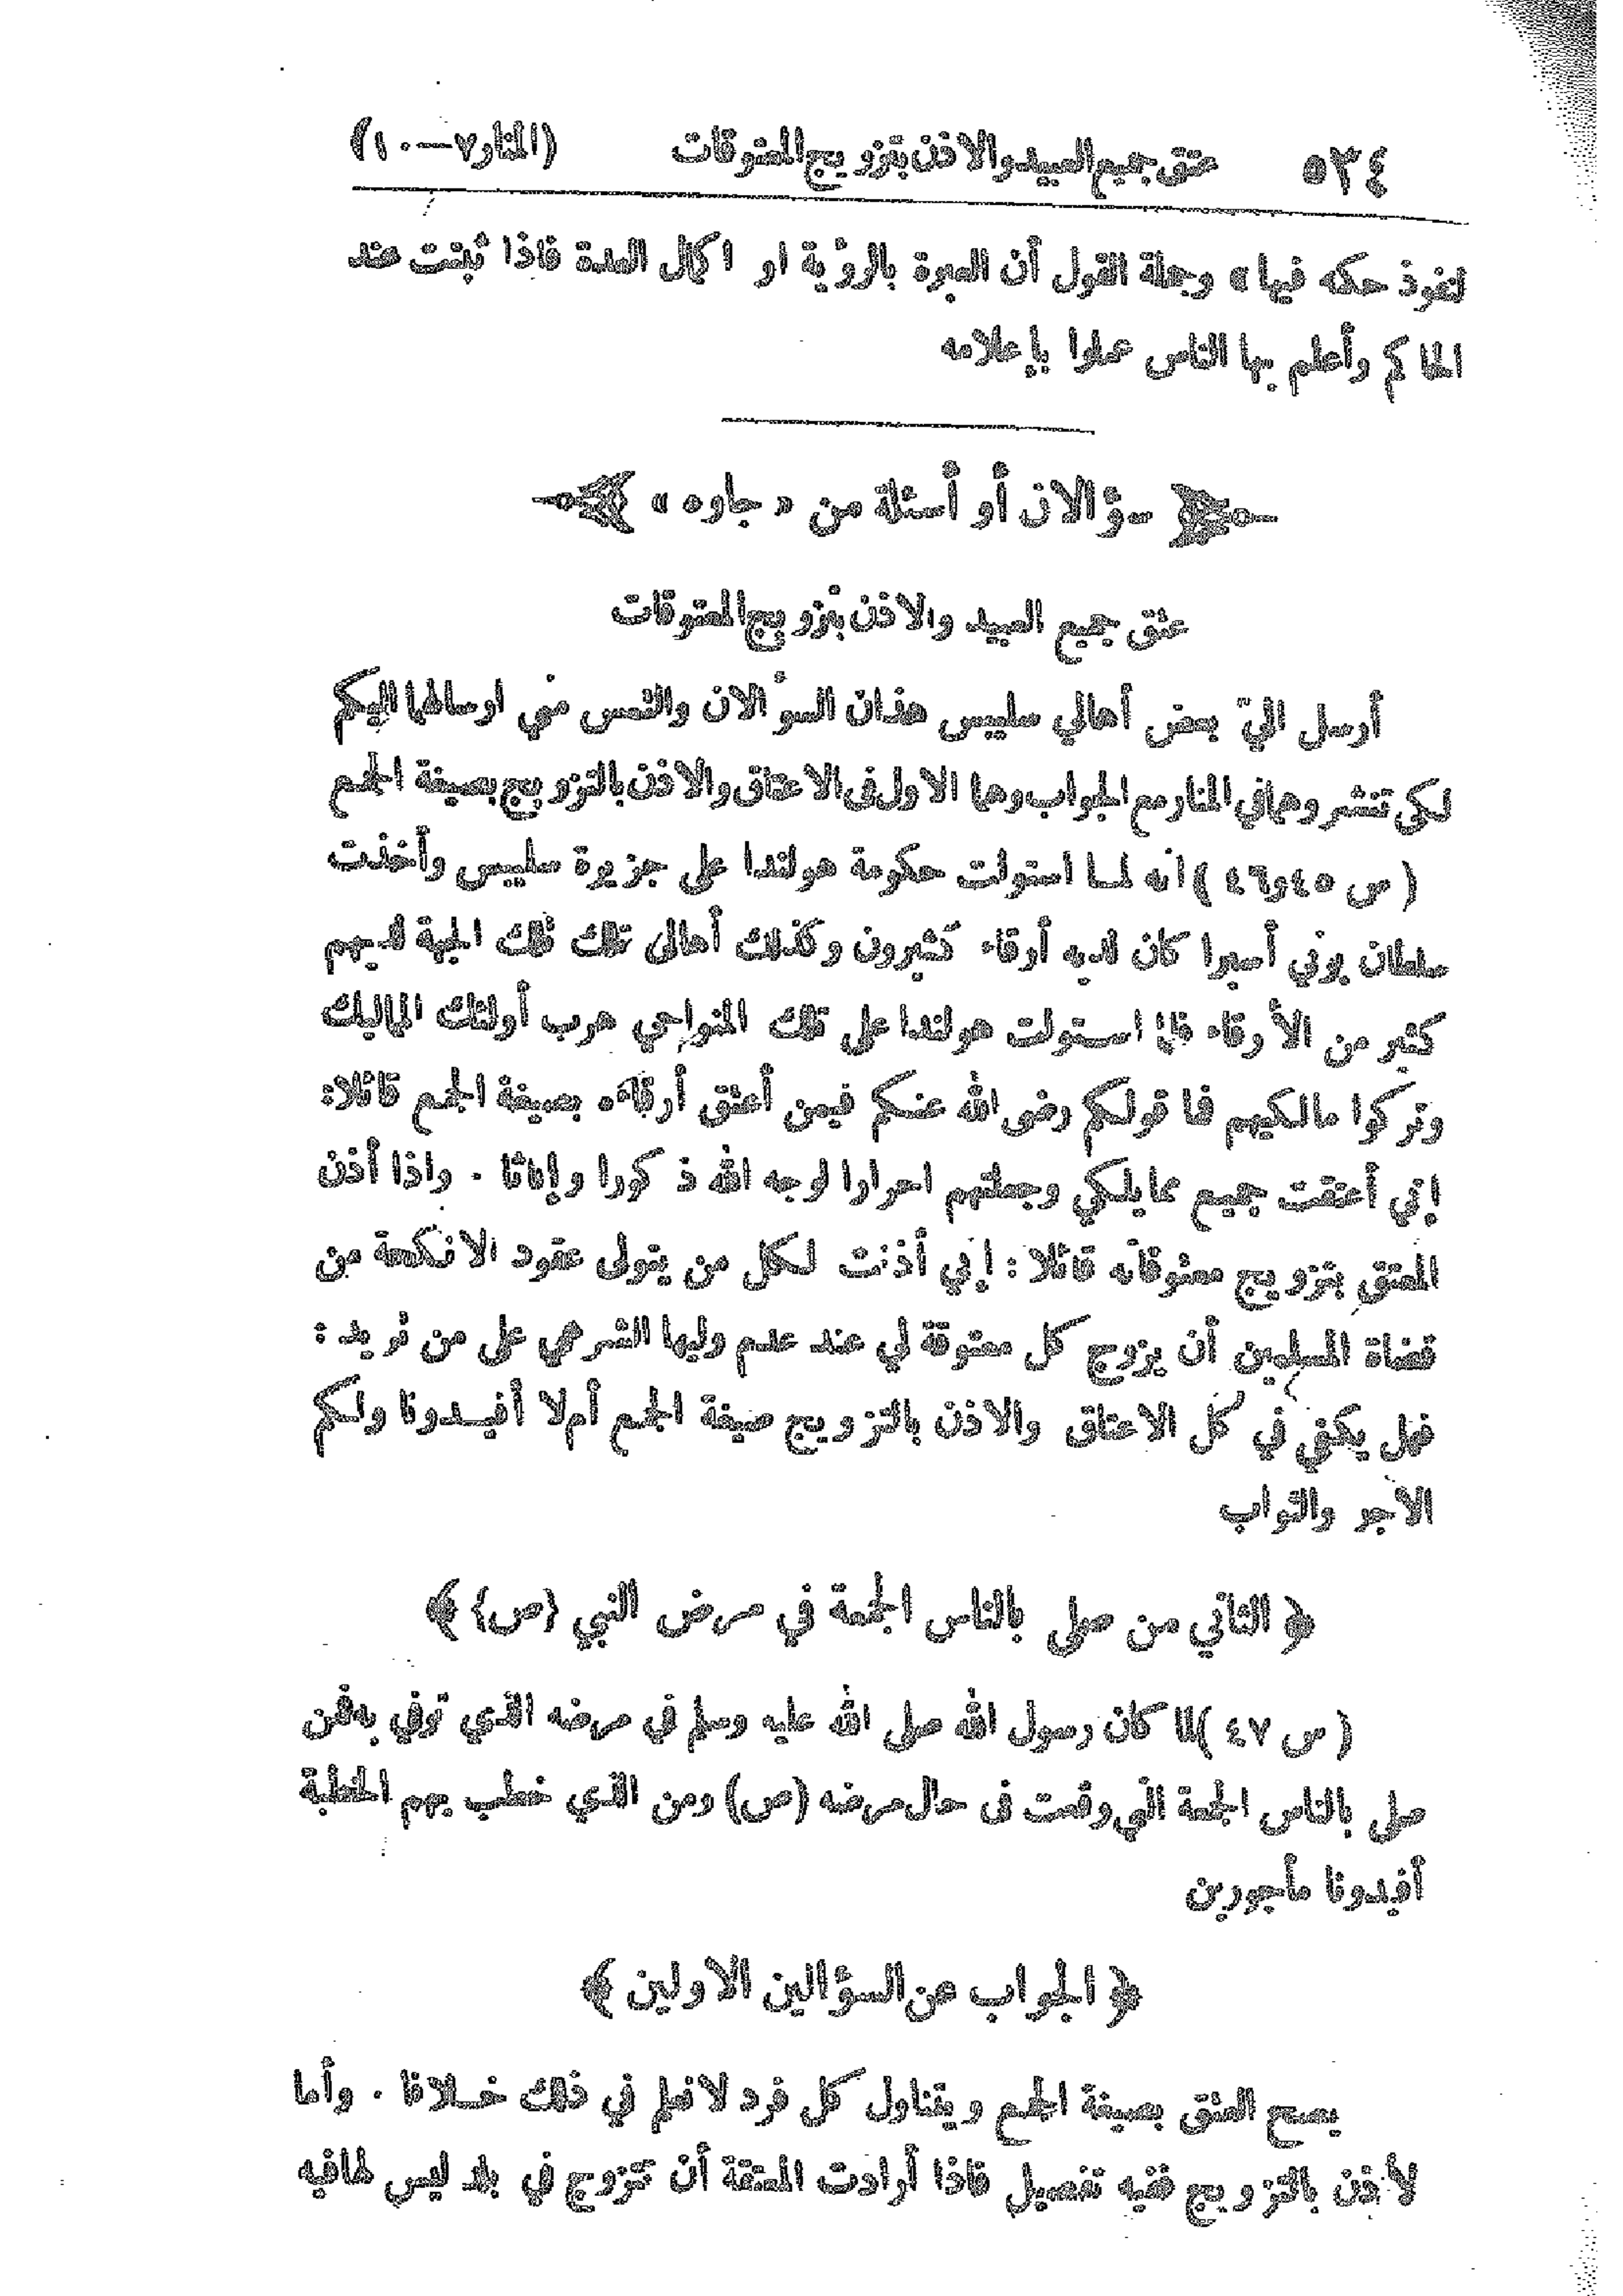 ٥٣٤ عتق جميع العبيد والاذن بتزويج المعتوقات (المنار ٧—١٠)
لنفوذ حكمه فيها» وجملة القول أن العبرة بالرؤية او اكمال العدة فاذا ثبتت عند
الحاكم وأعلم بها الناس عملوا بإعلامه
ـؤالان أو أسئلة من « جاوه »
عتق جميع العبيد والاذن بتزويج المعتوقات
أرسل اليّ بعض أهالي سليبس هذان السؤالان والتمس مني ارسالهما اليكم
لكي تنشروهما في المنار مع الجواب وهما الاول في الاعتاق والاذن بالتزويج بصيغة الجمع
(س ٤٥ و٤٦) انه لما استولت حكومة هولندا على جزيرة سليبس وأخذت
سلطان بوني أسيرا كان لديه أرقاء كثيرون وكذلك أهالى تلك تلك الجهة لديهم
كثير من الأرقاء فلما استولت هولندا على تلك النواحي هرب أولئك المماليك
وتركوا مالكيهم فما قولكم رضى الله عنكم فيمن أعتق أرقاءه بصيغة الجمع قائلا:
إني أعتقت جميع مماليكي وجعلتهم احرارا لوجه الله ذكورا وإناثا . واذا أذن
المعتق بتزويج معتوقاته قائلا : إني أذنت لكل من يتولى عقود الانكحة من
قضاة المسلمين أن يزوج كل معتوقة لي عند عدم وليها الشرعي على من تريد :
فهل يكفي في كل الاعتاق والاذن بالتزويج صيغة الجمع أم لا أفيـدونا ولكم
الأجر والثواب
﴿ الثاني من صلى بالناس الجمعة في مرض النبي {ص} ﴾
(س ٤٧) لما كان رسول الله صلى الله عليه وسلم في مرضه الذي توفي به فمن
صلى بالناس الجمعة التي وقعت فى حال مرضه (ص) ومن الذي خطب بهم الخطبة
أفيدونا مأجورين
﴿ الجواب عن السؤالين الاولين ﴾
يصح العتق بصيغة الجمع ويتناول كل فرد لا نعلم في ذلك خـلافا . وأما
لأذن بالتزويج ففيه تفصيل فاذا أرادت المعتقة أن تتزوج في بلد ليس لها فيه